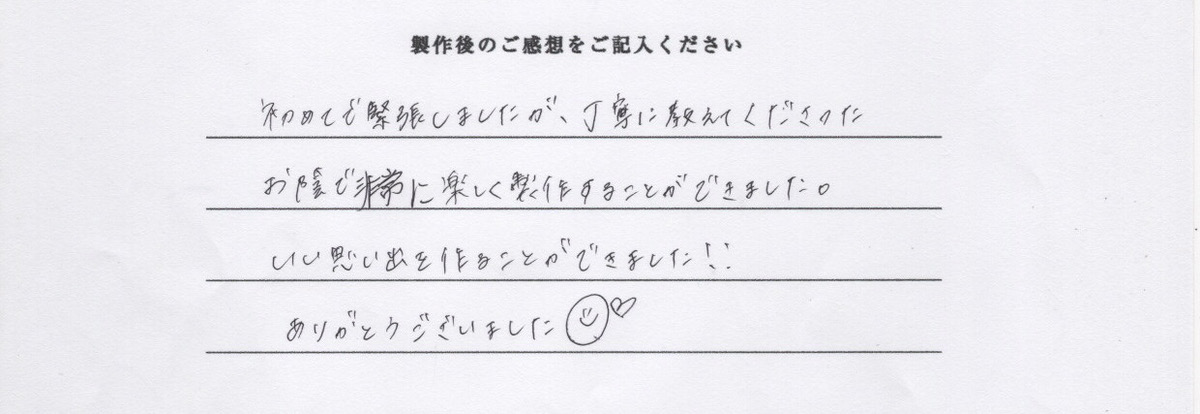 製作後のご感想をご記入ください
初めてで緊張しましたが、丁寧に教えてくださった
お陰で非常に楽しく製作することができました。
いい思い出を作ることができました!!
ありがとうございました